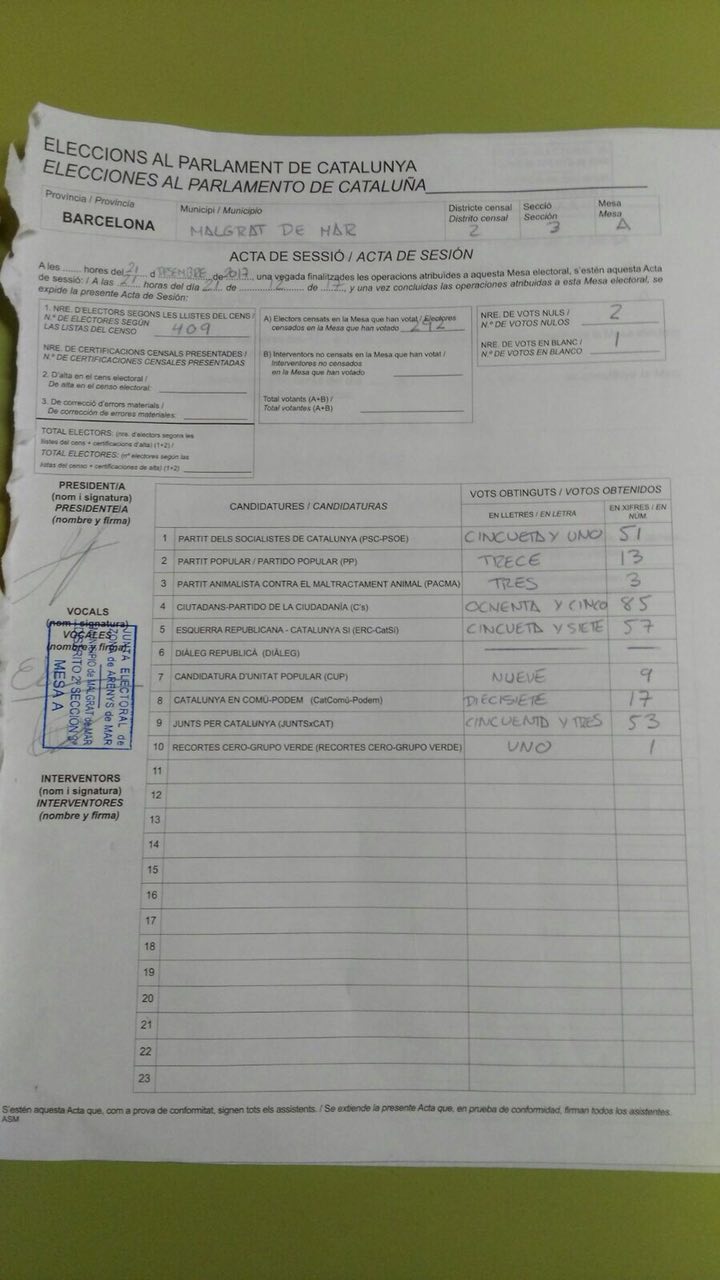 ELECCIONS AL PARLAMENT DE CATALUNYA
ELECCIONES AL PARLAMENTO DE CATALUÑA
Provincia / Província
BARCELONA
Municipi / Municipio
MALGRAT DE MAR
Districte censal
Distrito censal
2
Secció
Sección
3
Mesa
Mesa
A
ACTA DE SESSIÓ / ACTA DE SESIÓN
A les ....... hores del 21 d DESEMBRE de 2017, una vegada finalitzades les operacions atribuïdes a aquesta Mesa electoral, s'estén aquesta Acta
de sessió: / A las 21 horas del día 21 de 12 de 17, y una vez concluidas las operaciones atribuidas a esta Mesa electoral, se
expide la presente Acta de Sesión:
1. NRE. D'ELECTORS SEGONS LES LLISTES DEL CENS /
N.º DE ELECTORES SEGÚN
LAS LISTAS DEL CENSO 409
NRE. DE CERTIFICACIONS CENSALS PRESENTADES /
N.º DE CERTIFICACIONES CENSALES PRESENTADAS
2. D'alta en el cens electoral /
De alta en el censo electoral:
3. De correcció d'errors materials /
De corrección de errores materiales:
TOTAL ELECTORS: (nre. d'electors segons les
llistes del cens + certificacions d'alta) (1+2) /
TOTAL ELECTORES: (nº electores según las
listas del censo + certificaciones de alta) (1+2)
A) Electors censats en la Mesa que han votat / Electores
censados en la Mesa que han votado 292
B) Interventors no censats en la Mesa que han votat /
Interventores no censados
en la Mesa que han votado
Total votants (A+B) /
Total votantes (A+B)
NRE. DE VOTS NULS /
N.º DE VOTOS NULOS 2
NRE. DE VOTS EN BLANC /
N.º DE VOTOS EN BLANCO 1
PRESIDENT/A
(nom i signatura)
PRESIDENTE/A
(nombre y firma)
VOCALS
(nom i signatura)
VOCALES
(nombre y firma)
JUNTA ELECTORAL de
ZONA de ARENYS de MAR
MUNICIPIO de MALGRAT de MAR
DISTRITO 2º SECCION 3ª
MESA A
INTERVENTORS
(nom i signatura)
INTERVENTORES
(nombre y firma)
CANDIDATURES / CANDIDATURAS
VOTS OBTINGUTS / VOTOS OBTENIDOS
EN LLETRES / EN LETRA
EN XIFRES / EN NÚM.
1 PARTIT DELS SOCIALISTES DE CATALUNYA (PSC-PSOE) CINCUETA Y UNO 51
2 PARTIT POPULAR / PARTIDO POPULAR (PP) TRECE 13
3 PARTIT ANIMALISTA CONTRA EL MALTRACTAMENT ANIMAL (PACMA) TRES 3
4 CIUTADANS-PARTIDO DE LA CIUDADANÍA (C's) OCHENTA Y CINCO 85
5 ESQUERRA REPUBLICANA - CATALUNYA SÍ (ERC-CatSí) CINCUETA Y SIETE 57
6 DIÀLEG REPUBLICÀ (DIÀLEG)
7 CANDIDATURA D'UNITAT POPULAR (CUP) NUEVE 9
8 CATALUNYA EN COMÚ-PODEM (CatComú-Podem) DIECISIETE 17
9 JUNTS PER CATALUNYA (JUNTSxCAT) CINCUENTA Y TRES 53
10 RECORTES CERO-GRUPO VERDE (RECORTES CERO-GRUPO VERDE) UNO 1
11
12
13
14
15
16
17
18
19
20
21
22
23
S'estén aquesta Acta que, com a prova de conformitat, signen tots els assistents. / Se extiende la presente Acta que, en prueba de conformidad, firman todos los asistentes.
ASM